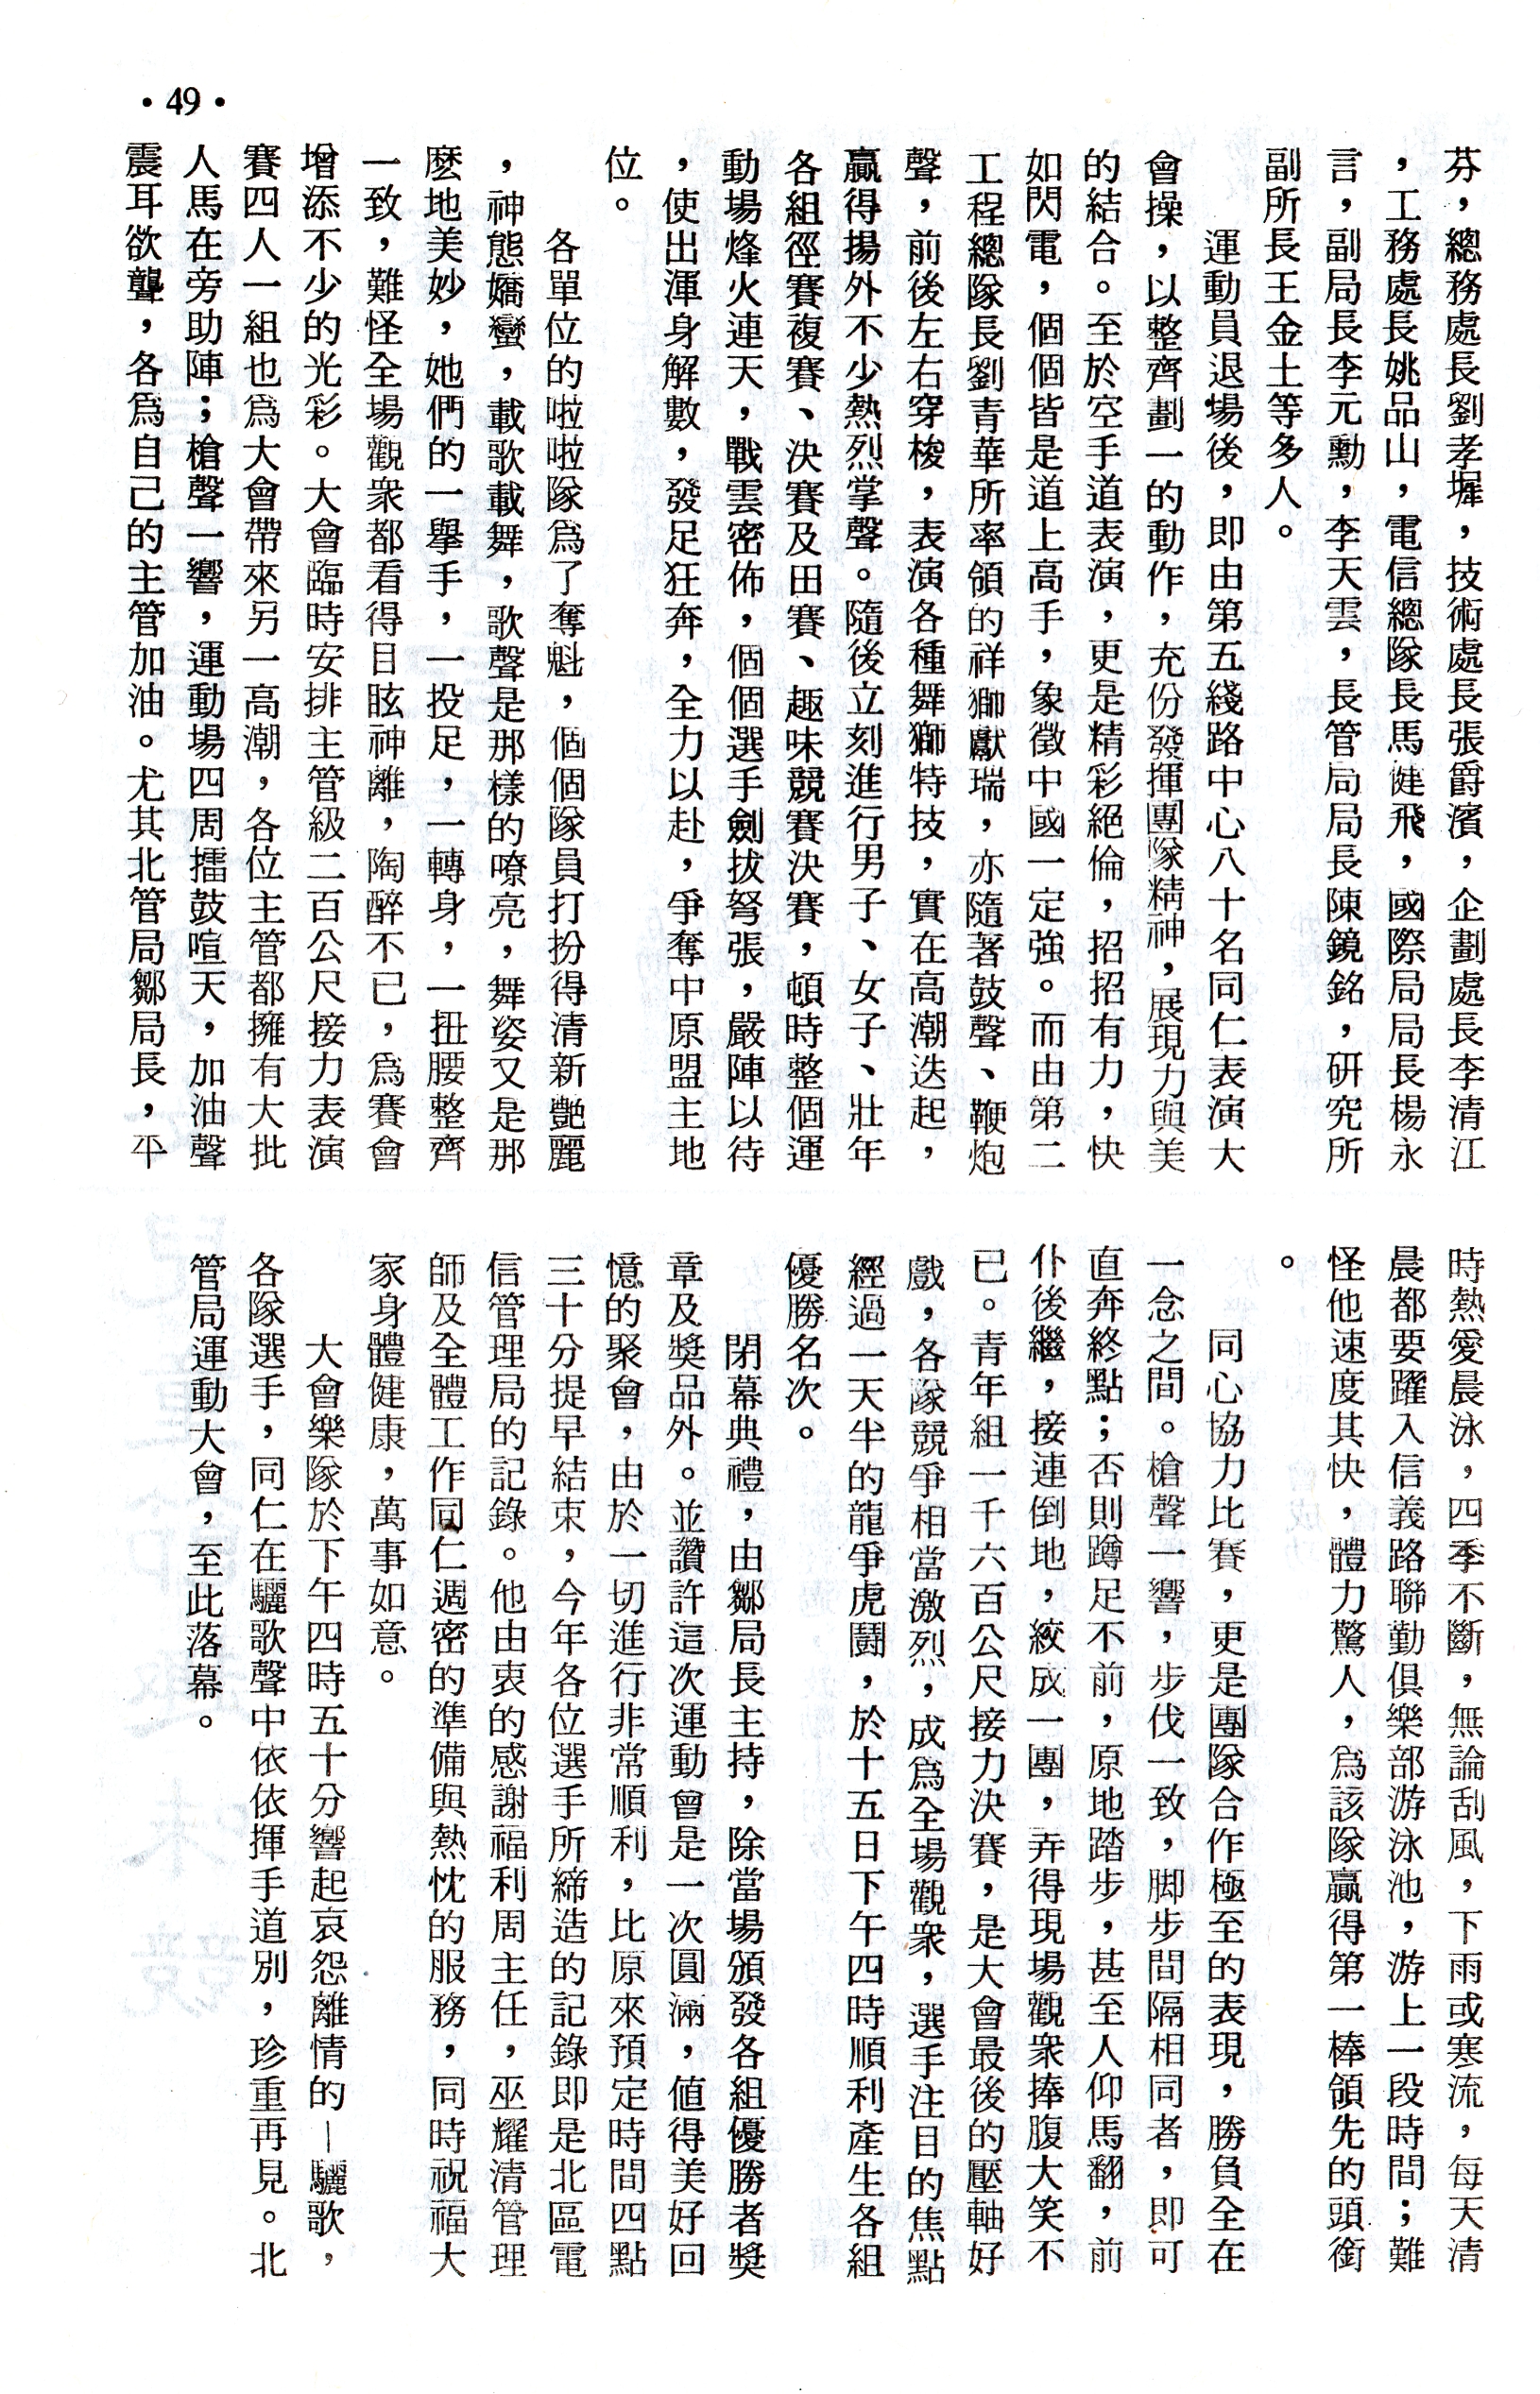 •49•
芬，總務處長劉孝墀，技術處長張爵濱，企劃處長李清江
，工務處長姚品山，電信總隊長馬健飛，國際局局長楊永
言，副局長李元勳，李天雲，長管局局長陳鏡銘，研究所
副所長王金土等多人。
運動員退場後，即由第五綫路中心八十名同仁表演大
會操，以整齊劃一的動作，充份發揮團隊精神，展現力與美
的結合。至於空手道表演，更是精彩絕倫，招招有力，快
如閃電，個個皆是道上高手，象徵中國一定強。而由第二
工程總隊長劉青華所率領的祥獅獻瑞，亦隨著鼓聲、鞭炮
聲，前後左右穿梭，表演各種舞獅特技，實在高潮迭起，
贏得場外不少熱烈掌聲。隨後立刻進行男子、女子、壯年
各組徑賽複賽、決賽及田賽、趣味競賽決賽，頓時整個運
動場烽火連天，戰雲密佈，個個選手劍拔弩張，嚴陣以待
，使出渾身解數，發足狂奔，全力以赴，爭奪中原盟主地
位。
各單位的啦啦隊為了奪魁，個個隊員打扮得清新艷麗
，神態嬌蠻，載歌載舞，歌聲是那樣的嘹亮，舞姿又是那
麼地美妙，她們的一舉手，一投足，一轉身，一扭腰整齊
一致，難怪全場觀衆都看得目眩神離，陶醉不已，為賽會
增添不少的光彩。大會臨時安排主管級二百公尺接力表演
賽四人一組也為大會帶來另一高潮，各位主管都擁有大批
人馬在旁助陣；槍聲一響，運動場四周擂鼓喧天，加油聲
震耳欲聾，各為自己的主管加油。尤其北管局鄒局長，平
時熱愛晨泳，四季不斷，無論刮風，下雨或寒流，每天清
晨都要躍入信義路聯勤俱樂部游泳池，游上一段時間；難
怪他速度其快，體力驚人，為該隊贏得第一棒領先的頭銜
。
同心協力比賽，更是團隊合作極至的表現，勝負全在
一念之間。槍聲一響，步伐一致，脚步間隔相同者，即可
直奔終點；否則蹲足不前，原地踏步，甚至人仰馬翻，前
仆後繼，接連倒地，絞成一團，弄得現場觀衆捧腹大笑不
已。青年組一千六百公尺接力決賽，是大會最後的壓軸好
戲，各隊競爭相當激烈，成為全場觀衆，選手注目的焦點
經過一天半的龍爭虎鬪，於十五日下午四時順利產生各組
優勝名次。
閉幕典禮，由鄒局長主持，除當場頒發各組優勝者獎
章及獎品外。並讚許這次運動會是一次圓滿，值得美好回
憶的聚會，由於一切進行非常順利，比原來預定時間四點
三十分提早結束，今年各位選手所締造的記錄即是北區電
信管理局的記錄。他由衷的感謝福利周主任，巫耀清管理
師及全體工作同仁週密的準備與熱忱的服務，同時祝福大
家身體健康，萬事如意。
大會樂隊於下午四時五十分響起哀怨離情的—驪歌，
各隊選手，同仁在驪歌聲中依依揮手道別，珍重再見。北
管局運動大會，至此落幕。